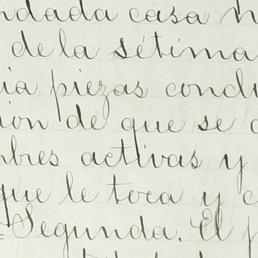 ndada casa n
de la sétima
ia piezas condu
ion de que se
mbres activas y
que le toca y c
Segunda. El p